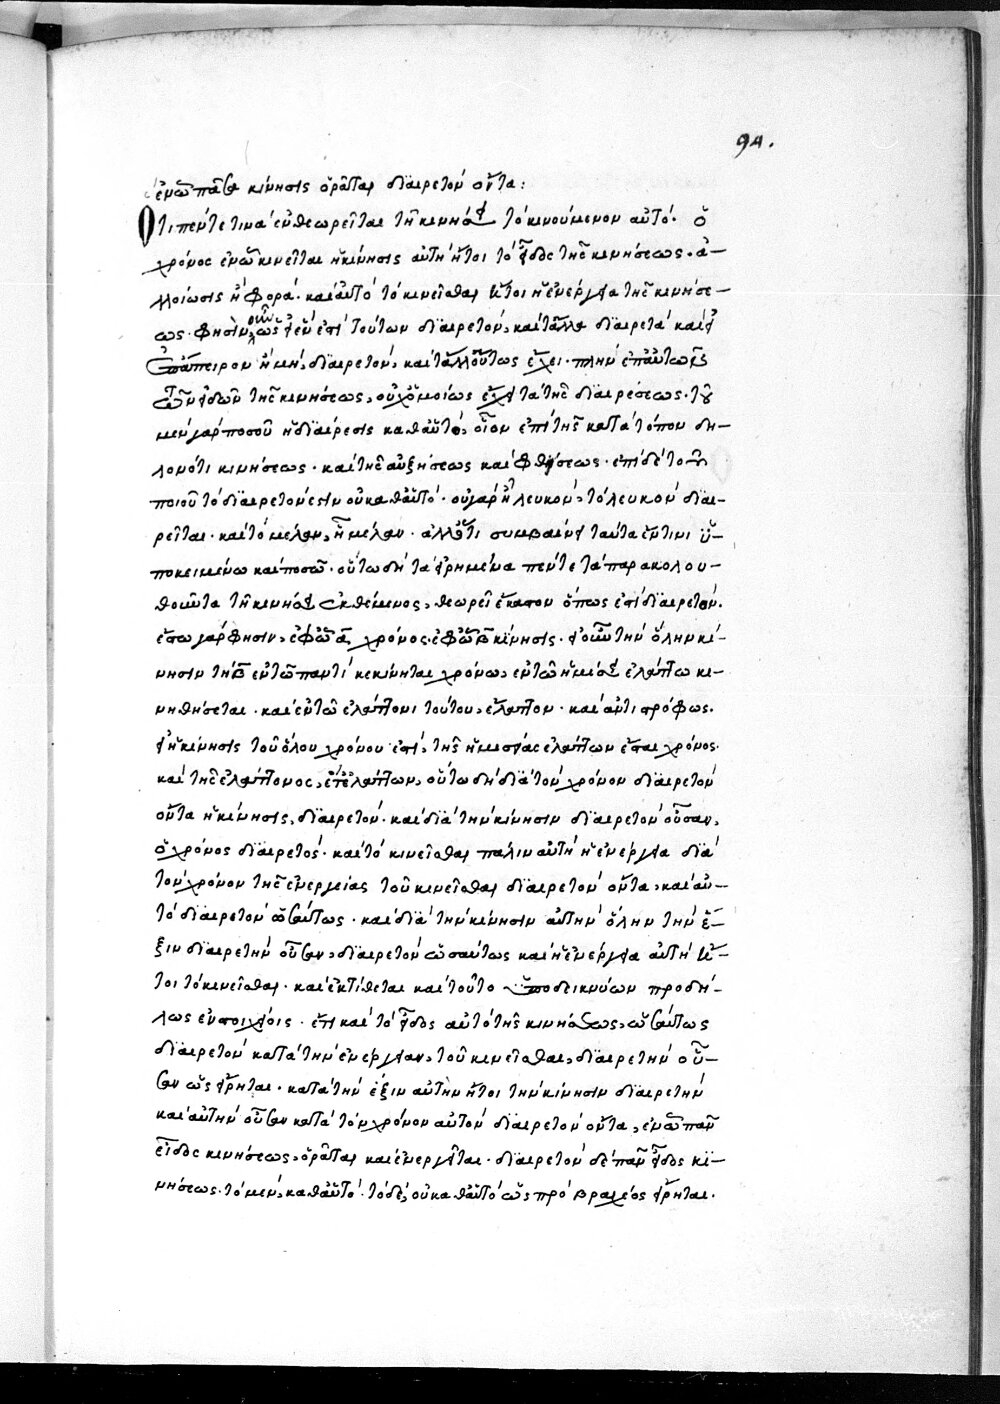 94.
ἐν ᾧ πᾶσα κίνησις ὁρᾶται διαιρετὸν ὄντα:
Ὅτι πέντε τινὰ ἐνθεωρεῖται τῇ κινήσει τὸ κινούμενον αὐτό. ὁ
χρόνος ἐν ᾧ κινεῖται ἡ κίνησις αὐτὴ ἤτοι τὸ εἶδος τῆς κινήσεως. ἀ-
λλοίωσις ἢ φορά. καὶ αὐτὸ τὸ κινεῖσθαι ἤτοι ἡ ἐνέργεια τῆς κινήσε-
ως. φησὶν οὖν ὡς εἰ ἓν ἐπὶ τούτων διαιρετὸν, καὶ τἄλλα διαιρετὰ καὶ εἰ
ἄπειρον ἢ μὴ διαιρετὸν, καὶ τἄλλα οὕτως ἔχει. πλὴν ἐπ' αὐτῶν
τῶν εἰδῶν τῆς κινήσεως, οὐχ ὁμοίως ἔχει τὰ τῆς διαιρέσεως. τοῦ
μὲν γὰρ ποσοῦ ἡ διαίρεσις καθ' αὑτό, οἷον ἐπὶ τῆς κατὰ τόπον δη-
λονότι κινήσεως. καὶ τῆς αὐξήσεως καὶ φθίσεως. ἐπὶ δὲ τοῦ
ποιοῦ τὸ διαιρετόν ἐστιν οὐ καθ' αὑτό. οὐ γὰρ ᾗ λευκὸν, τὸ λευκὸν διαι-
ρεῖται. καὶ τὸ μέλαν, ᾗ μέλαν. ἀλλ' ὅτι συμβαίνει ταῦτα ἔν τινι ὑ-
ποκειμένω καὶ ποσῶ. οὕτω δὴ τὰ εἰρημένα πέντε τὰ παρακολου-
θοῦντα τῇ κινήσει ἐκθέμενος, θεωρεῖ ἕκαστον ὅπως ἐστὶ διαιρετόν.
ἔστω γὰρ φησιν, ἐφ' ᾧ α χρόνος. ἐφ' ᾧ β κίνησις. εἰ οὖν τὴν ὅλην κί-
νησιν τὴν β ἐν τῶ παντὶ κεκίνηται χρόνω, ἐν τῶ ἡμίσει ἐλάττω κι-
νηθήσεται. καὶ ἐν τῶ ἐλάττονι τούτου, ἔλαττον. καὶ ἀντιστρόφως.
εἰ ἡ κίνησις τοῦ ὅλου χρόνου ἐστί, τῆς ἡμισείας ἐλάττων ἔσται χρόνος.
καὶ τῆς ἐλάττονος, ἔτι ἐλάττων, οὕτω δὴ διὰ τὸν χρόνον διαιρετὸν
ὄντα ἡ κίνησις, διαιρετόν. καὶ διὰ τὴν κίνησιν διαιρετὸν οὖσαν,
ὁ χρόνος διαιρετός. καὶ τὸ κινεῖσθαι πάλιν αὐτὴ ἡ ἐνέργεια διὰ
τὸν χρόνον τῆς ἐνεργείας τοῦ κινεῖσθαι διαιρετὸν ὄντα, καὶ αὐ-
τὸ διαιρετὸν ὡσαύτως. καὶ διὰ τὴν κίνησιν αὐτὴν ὅλην τὴν ἕ-
ξιν διαιρετὴν οὖσαν, διαιρετὸν ὡσαύτως καὶ ἡ ἐνέργεια αὐτὴ ἤ-
τοι τὸ κινεῖσθαι. καὶ ἐκτίθεται καὶ τοῦτο ὑποδεικνύων προδή-
λως ἐν στοιχείοις. ἔτι καὶ τὸ εἶδος αὐτὸ τῆς κινήσεως, ὡσαύτως
διαιρετὸν κατὰ τὴν ἐνέργειαν, τοῦ κινεῖσθαι, διαιρετὴν οὖ-
σαν ὡς εἴρηται. κατὰ τὴν ἕξιν αὐτὴν ἤτοι τὴν κίνησιν διαιρετὴν
καὶ αὐτὴν οὖσαν κατὰ τὸν χρόνον αὐτὸν διαιρετὸν ὄντα, ἐν ᾧ πᾶν
εἶδος κινήσεως, ὁρᾶται καὶ ἐνεργεῖται. διαιρετὸν δὲ πᾶν εἶδος κι-
νήσεως. τὸ μὲν, καθ' αὑτό. τὸ δὲ, οὐ καθ' αὑτό ὡς πρὸ βραχέος εἴρηται.